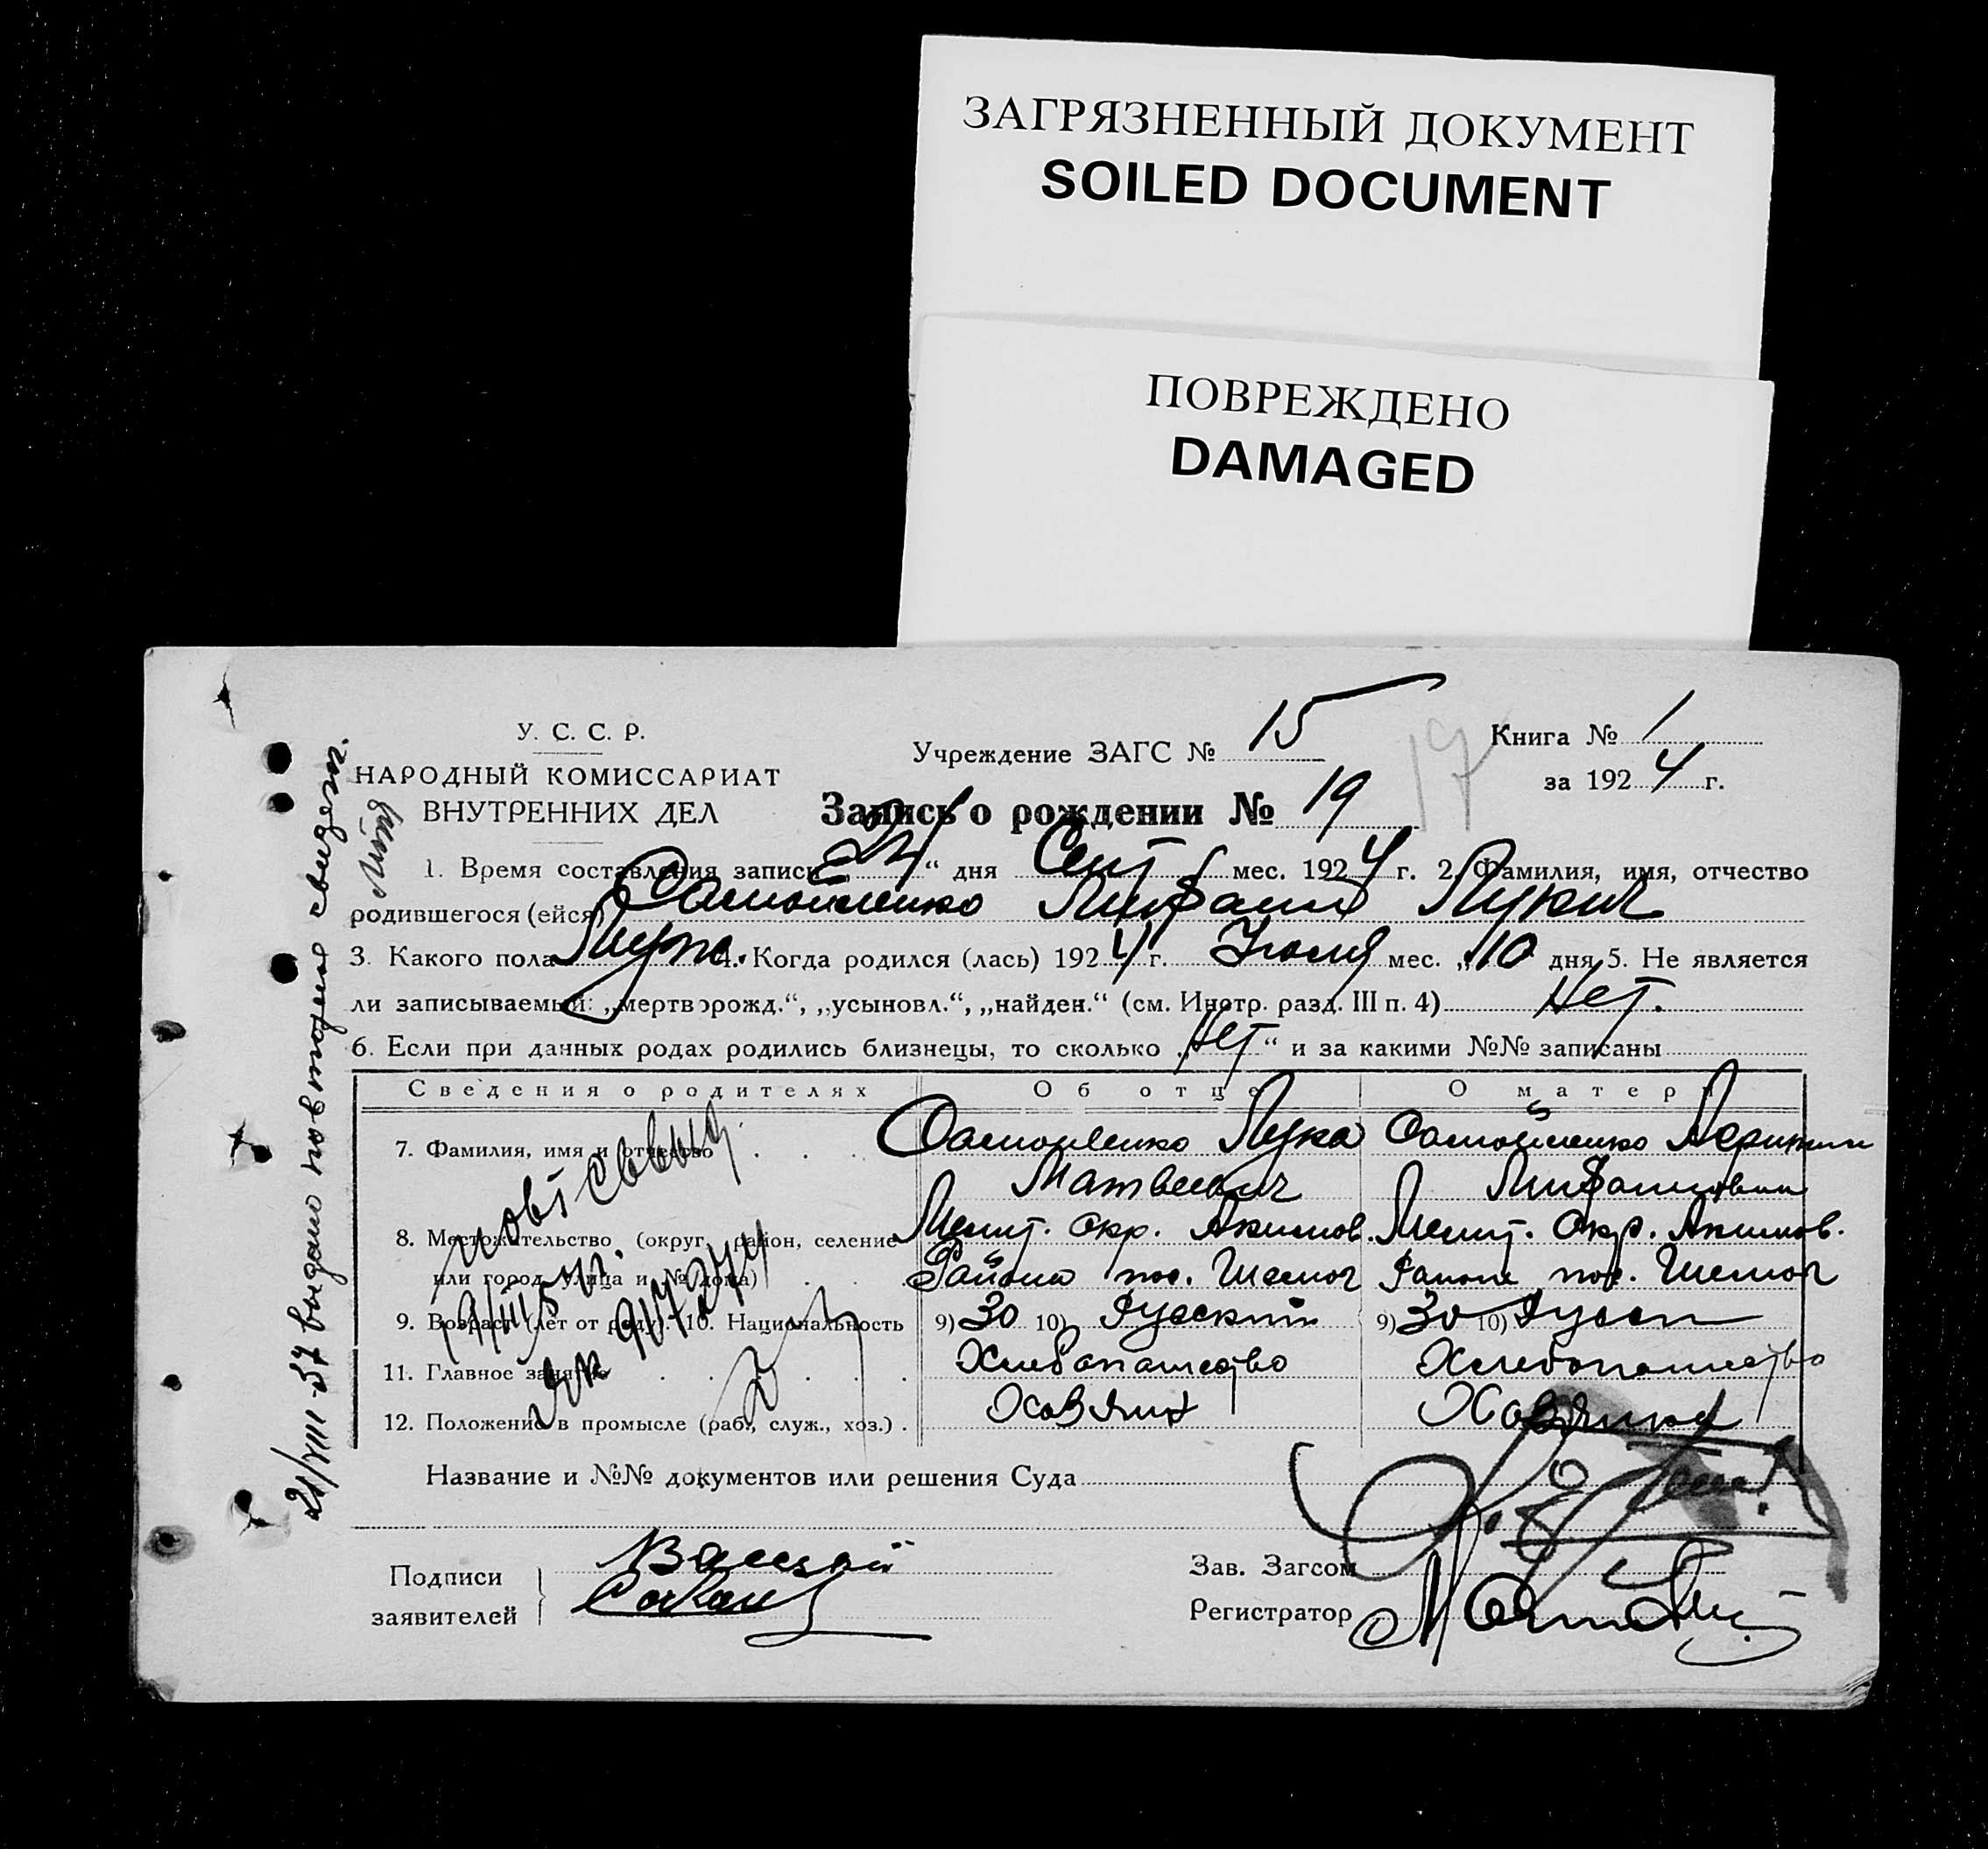 ЗАГРЯЗНЕННЫЙ ДОКУМЕНТ
SOILED DOCUMENT
ПОВРЕЖДЕНО
DAMAGED
У. С. С. Р.
НАРОДНЫЙ КОМИССАРИАТ
ВНУТРЕННИХ ДЕЛ
Учреждение ЗАГС № 15
Книга № 1
за 1924 г.
17
Запись о рождении № 19
1. Время составления записи „24“ дня Сент мес. 1924 г. 2. Фамилия, имя, отчество
родившегося (ейся) Самойленко Лукич
3. Какого пола Муж. 4. Когда родился (лась) 1924 г. Июля мес. „10 дня 5. Не является
ли записываемый: „мертворожд.“, „усыновл.“, „найден.“ (см. Инстр. разд. III п. 4) Нет.
6. Если при данных родах родились близнецы, то сколько „Нет“ и за какими №№ записаны
Сведения о родителях Об отце О матери
7. Фамилия, имя и отчество Самойленко Лука Самойленко
Матвеевич
8. Местожительство (округ, район, селение Мелит. окр. Акимов. Мелит. Окр. Акимов.
или город, улица и № дома) Района пос. Района пос.
9. Возраст (лет от роду). 10. Национальность 9) 30 10) Русский 9) 30 10) Русск
11. Главное занятие Хлебопашество Хлебопашество
12. Положение в промысле (раб., служ., хоз.) Хозяин Хозяйка
Название и №№ документов или решения Суда
Подписи
заявителей
Зав. Загсом
Регистратор
21/VIII-37 выдано повторное свидет.